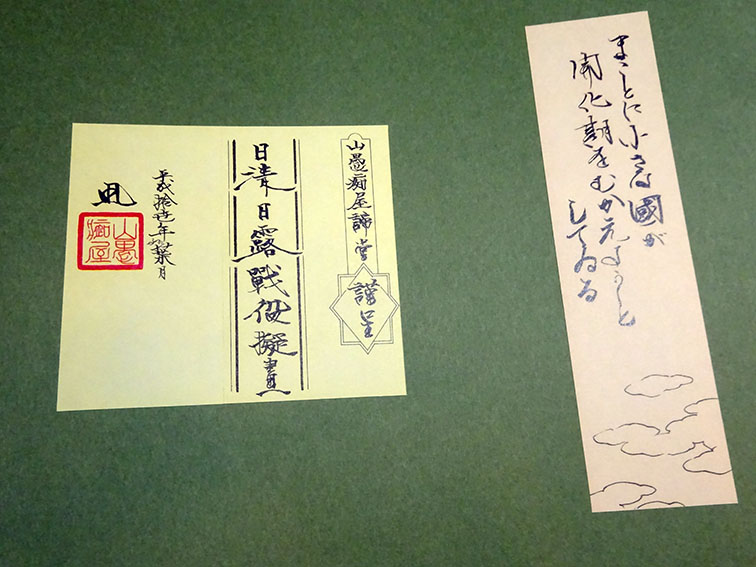 まことに小さな國が
開化期をむかえようと
してゐる
山愚痴屋諦堂
謹呈
日清日露戰役擬畫
平成拾年葉月
山愚
痴屋